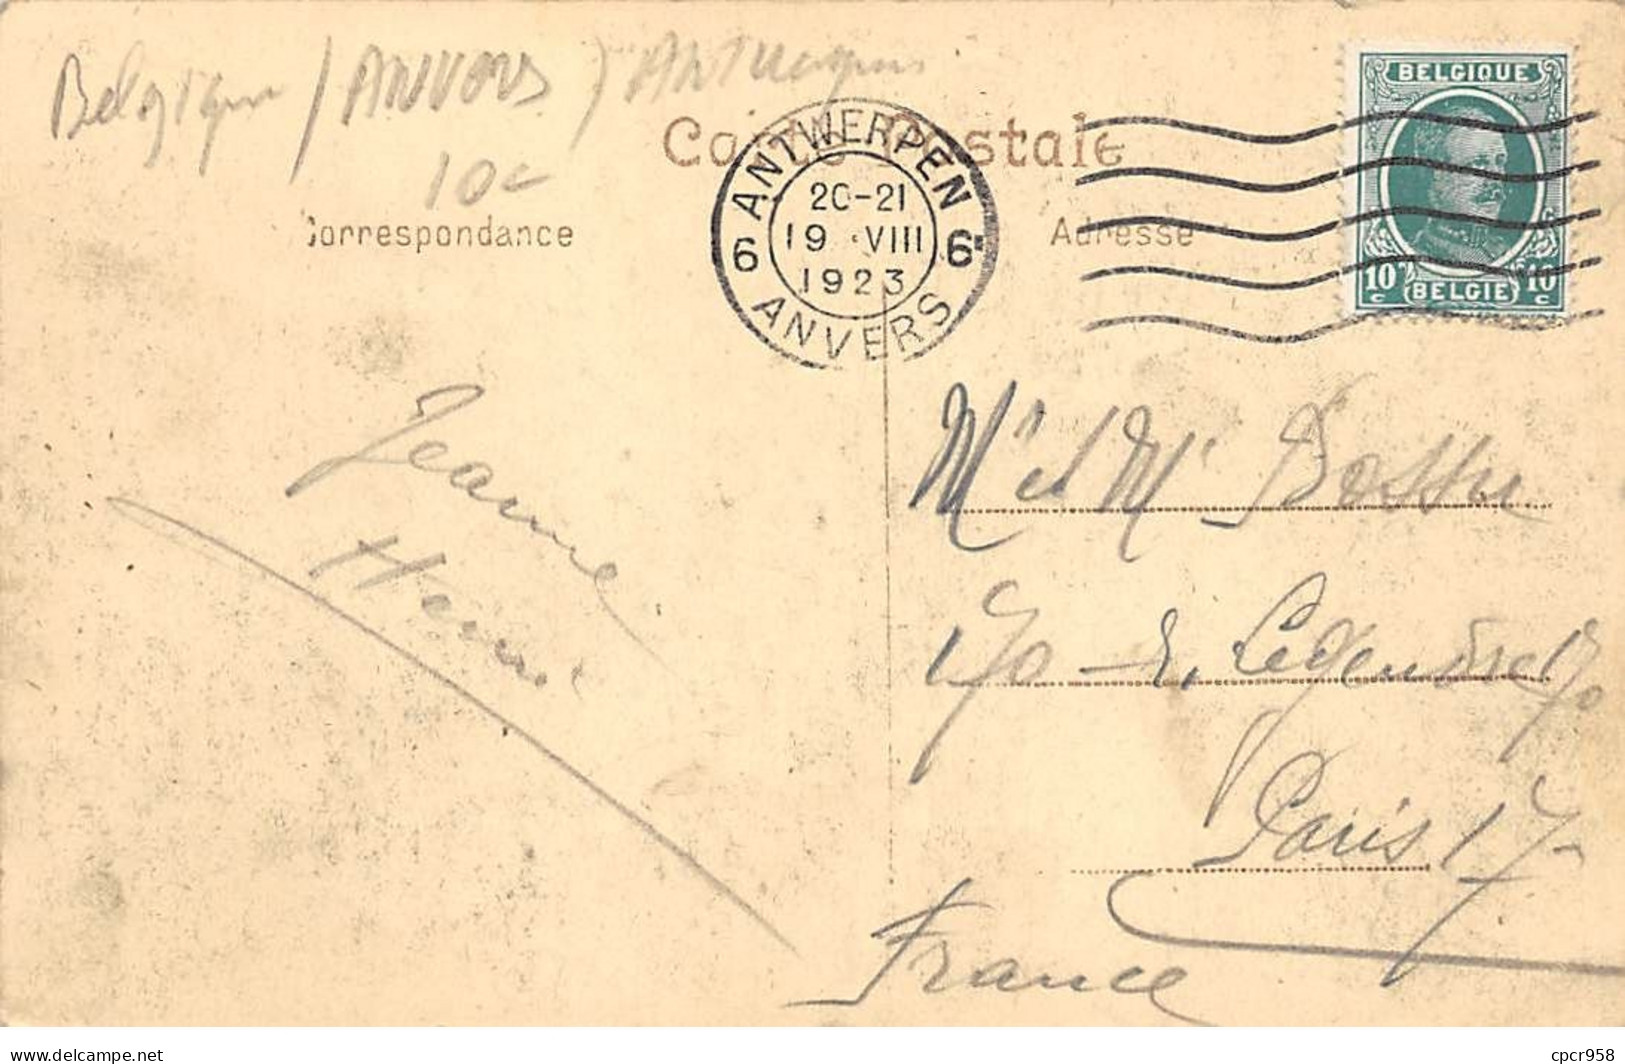 Belgique / ANVERS /
10c
Carte Postale
Correspondance
Adresse
ANTWERPEN
20-21
19 VIII
1923
6 6
ANVERS
BELGIQUE
10c 10c
BELGIE
Jeanne
Henri
Mr et Mme Bossu
170 Legendre
Paris 17
France
delcampe.net
cpcr958